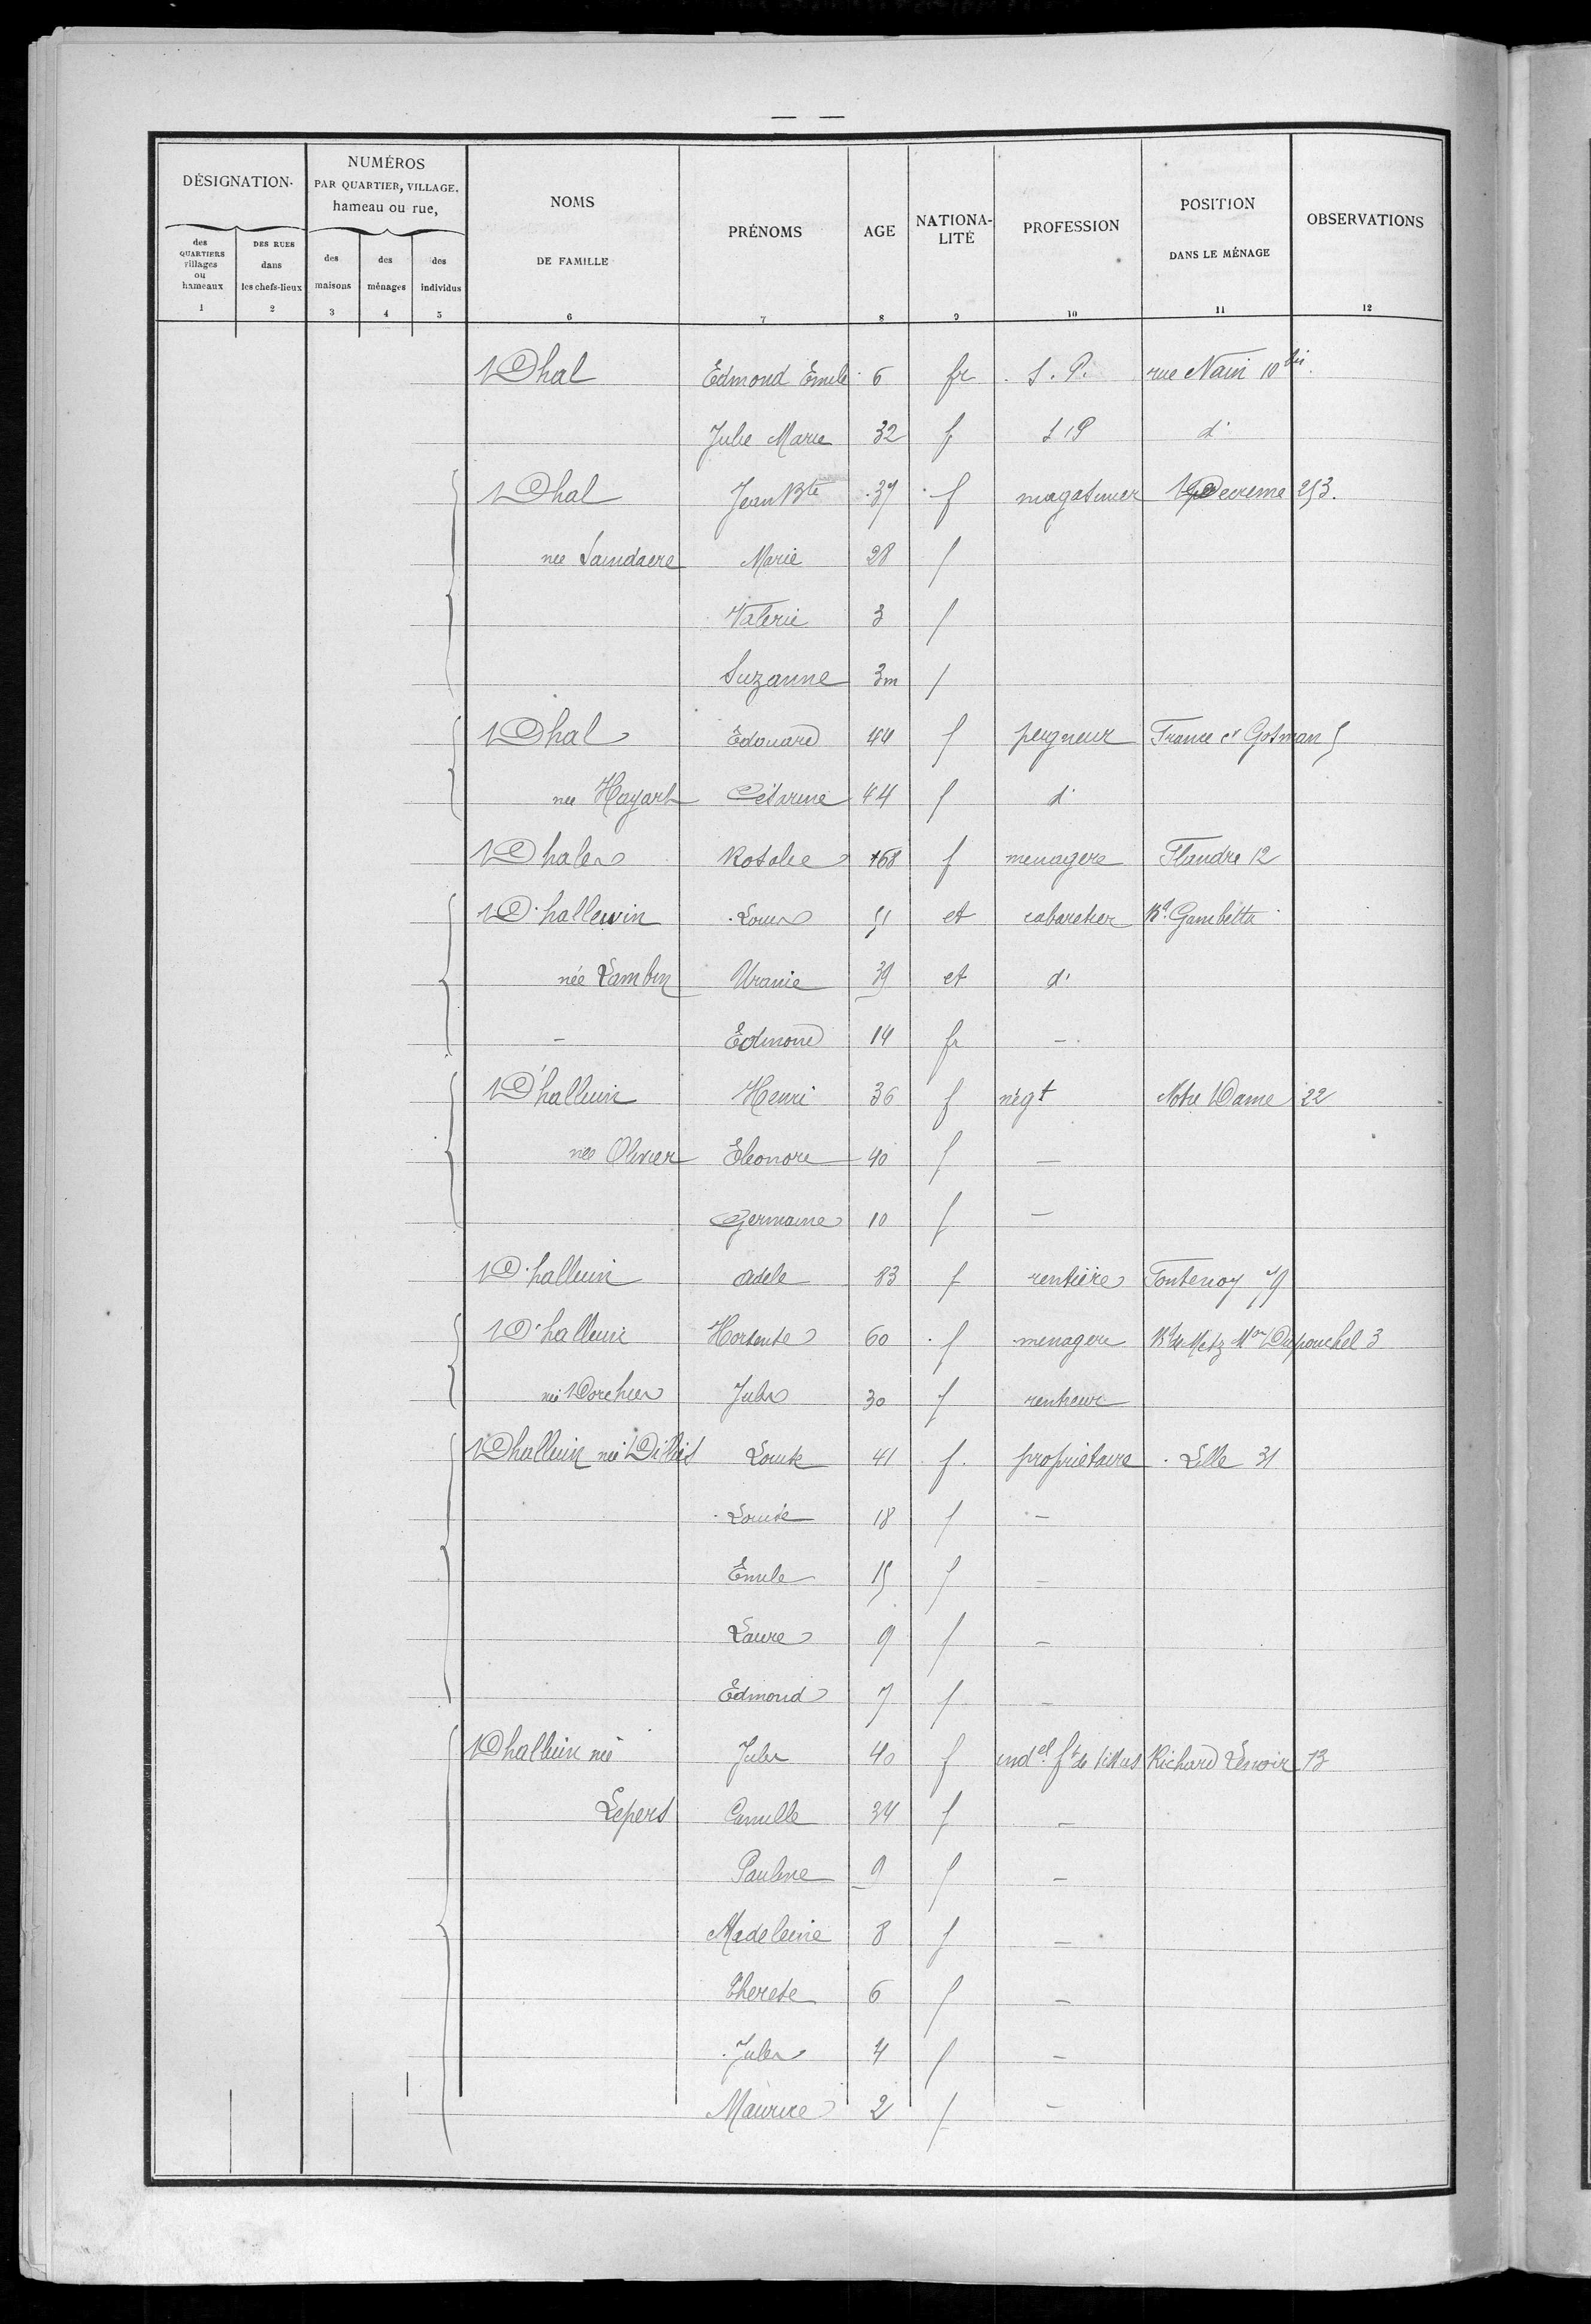 DÉSIGNATION.
NUMÉROS
PAR QUARTIER, VILLAGE.
hameau ou rue,
NOMS
DE FAMILLE
PRÉNOMS
AGE
NATIONA-
LITÉ
PROFESSION
POSITION
DANS LE MÉNAGE
OBSERVATIONS
des
QUARTIERS
villages
ou
hameaux
DES RUES
dans
les chefs-lieux
des
maisons
des
ménages
des
individus
1 2 3 4 5 6 7 8 9 10 11 12
Dhal Edmond Emile 6 fr S. P. rue Nain 10 bis
Julie Marie 32 f S P d°
Dhal Jean Bte 37 f magasinier Decreme 253.
née Marie 28 f
Valerie 3 f
Suzanne 3m f
Dhal Edouard 44 f peigneur France cr Gosman 5
née Hayart Césarine 44 f d°
Dhales Rosalie 68 f menagere Flandre 12
D'hallewin Louis 51 et cabaretier Bd Gambetta
née Lambin Uranie 39 et d°
- Edmond 14 fr -
D'halluin Henri 36 f négt Notre Dame 22
née Olivier Eleonore 40 f -
Germaine 10 f -
D'halluin Adele 83 f rentière Fontenoy 79
D'halluin Hortense 60 f menagere Bd de Metz Mon Dupouchel 3
née Dorchies Jules 30 f rentreur
Dhalluin née Dillies Louise 41 f. propriétaire Lille 31
Louise 18 f -
Emile 15 f -
Laure 9 f -
Edmond 7 f -
Dhalluin née Jules 40 f indel ft de tissus Richard Lenoir 13
Lepers Camille 34 f -
Pauline 9 f -
Madeleine 8 f -
Therese 6 f -
Jules 4 f -
Maurice 2 f -